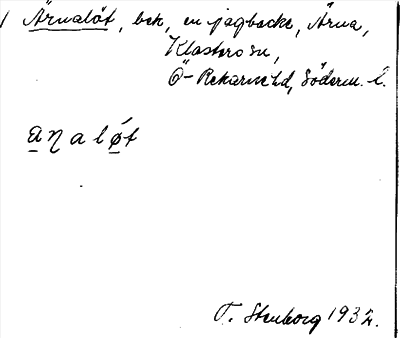 Ärnalöt, bek, en jagbacke, Ärna,
Klosters sn,
Ö-Rekarne hd, Söderm. l.
a̲ŋalǿ̲t
T. Stenborg 1932.